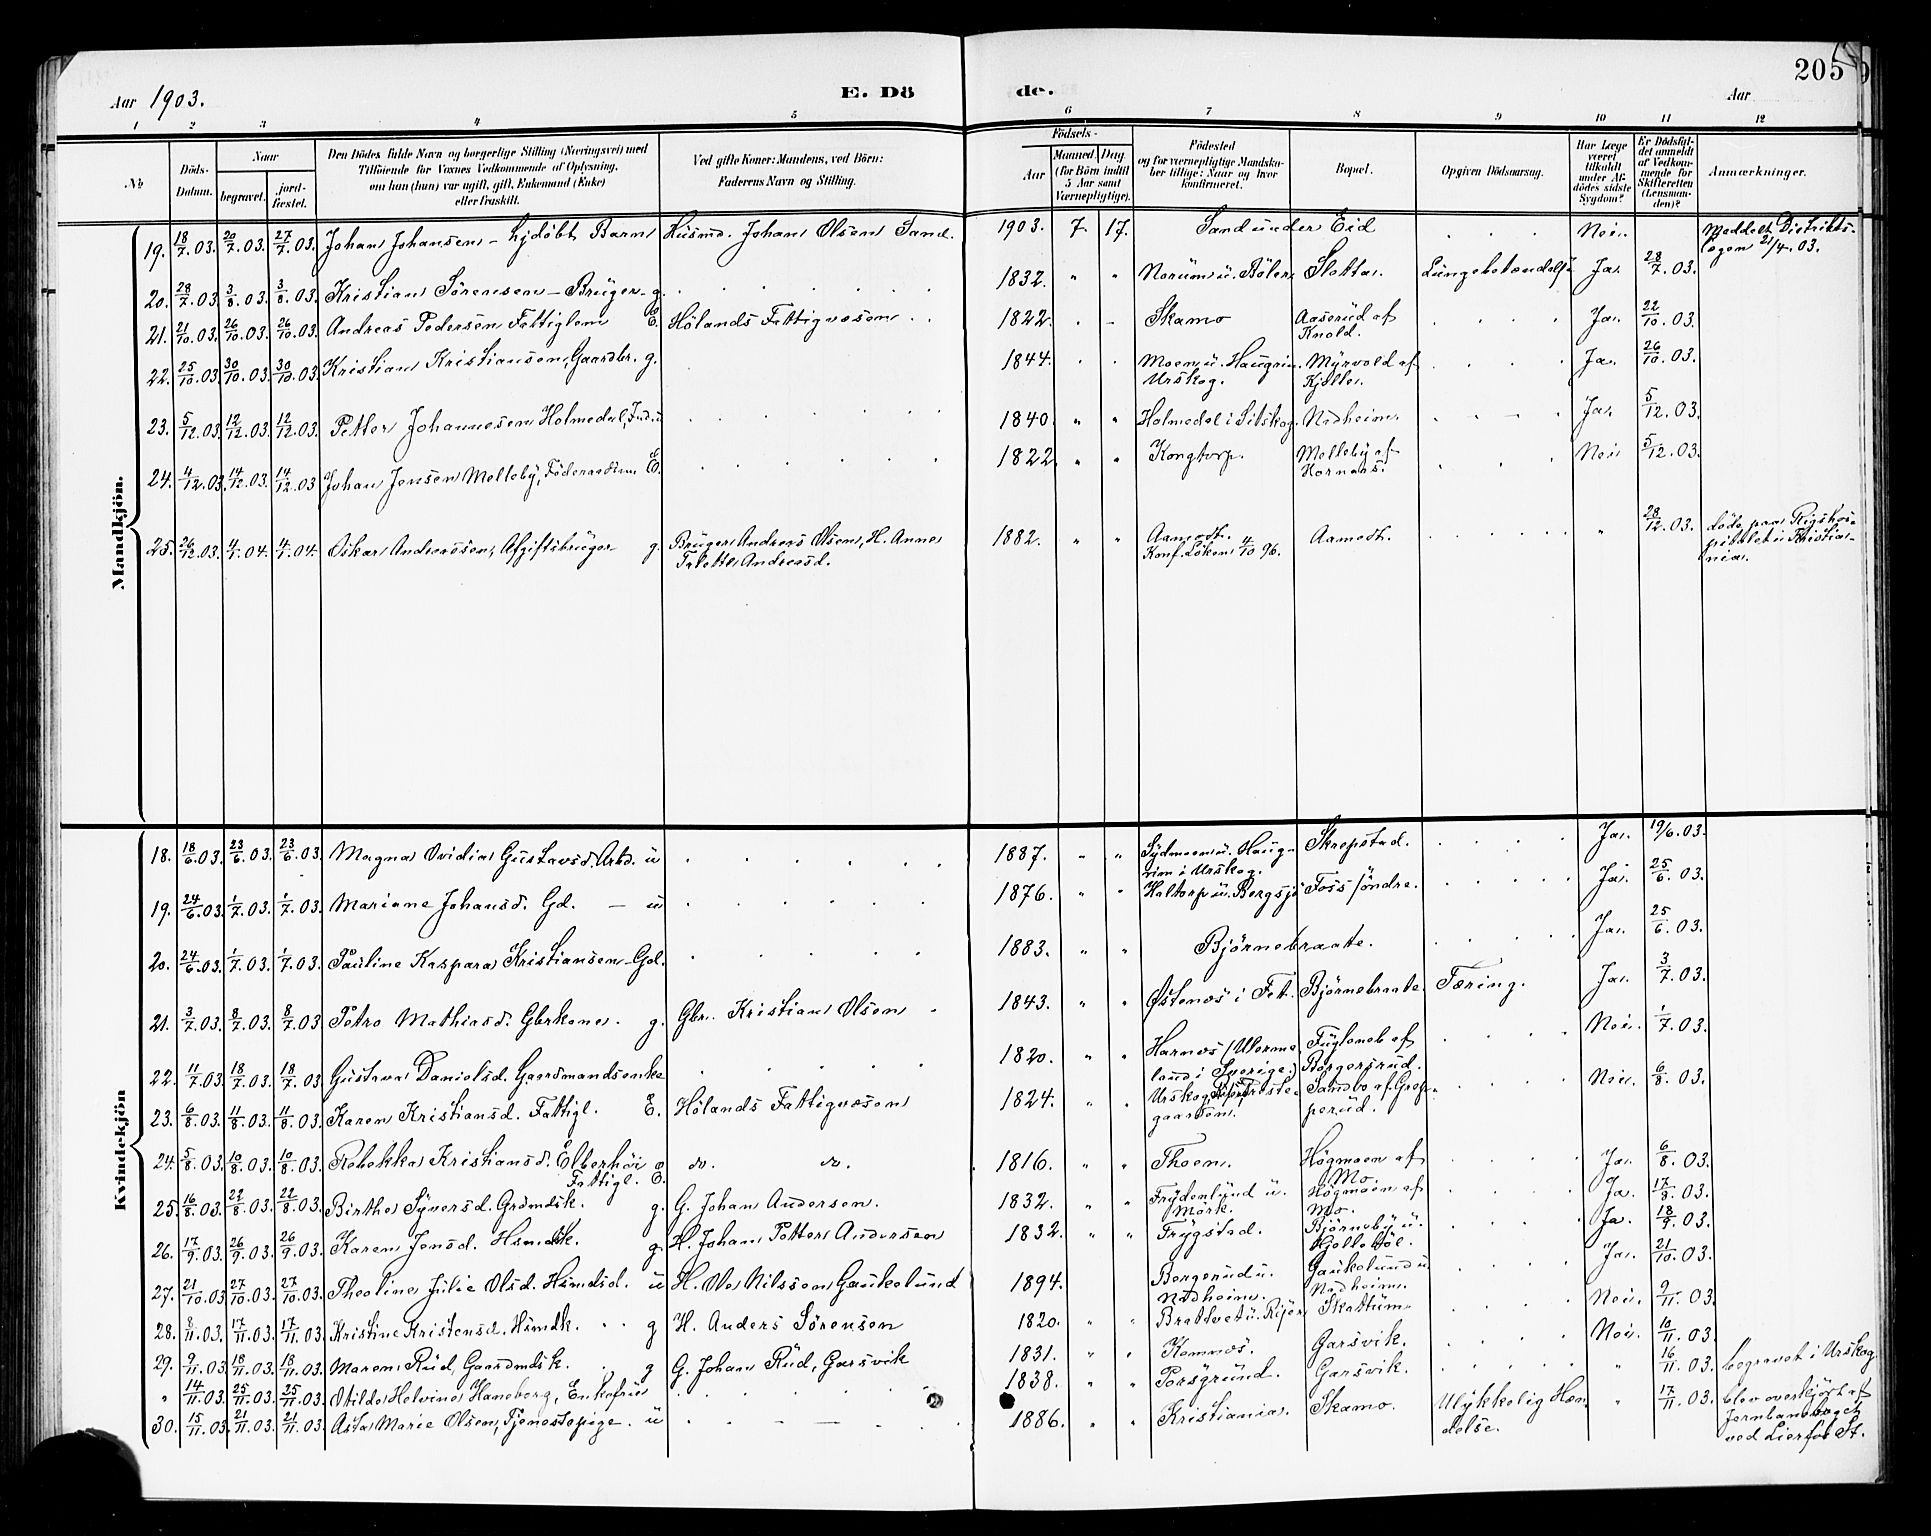 205
Aar 1903.
E. Dö
de.
Aar
1 2 3 4 5 6 7 8 9 10 11 12
No
Döds-Datum.
Naar
begravet.
jord-fæstet.
Den Dödes fulde Navn og borgerlige Stilling (Næringsvei) med
Tilföiende for Voxnes Vedkommende af Oplysning,
om han (hun) var ugift, gift, Enkemand (Enke)
eller fraskilt.
Ved gifte Koner: Mandens, ved Börn:
Faderens Navn og Stilling.
Födsels-
Aar
Maaned Dag
(for Börn indtil
5 Aar samt
Værnepligtige).
Födested
og for værnepligtige Mandska-
ber tillige: Naar og hvor
konfirmeret.
Bopæl.
Opgiven Dödsaarsag.
Har Læge
været
tilkaldt
under Af-
dödes sidste
Sygdom?
Er Dödsfal-
det anmeldt
af Vedkom-
mende for
Skifteretten
(Lensman-
den)?
Anmærkninger.
Mandkjön.
19. 18/7.03. 20/7.03. 27/7.03. Johan Johansen - hjdøbt Barn Husmd. Johan Olsen Sand. 1903. 7. 17. Sand under Eid Nei. Meddelt Distrikts-
lægen 21/7.03.
20. 28/7.03. 3/8.03. 3/8.03. Kristian Sørensen - Bruger - g. 1832. " " Norum u. Böler Slotta. Lungebetændelse Ja. 28/7.03.
21. 21/10.03. 26/10.03. 26/10.03. Andreas Pedersen Fattiglem E. Hölands Fattigvæsen 1822. Skamo Aaserud af
Knold. Ja. 22/10.03.
22. 25/10.03. 30/10.03. 30/10.03. Kristian Kristiansen, Gaardbr. g. 1844. Moen u. Haugrim
Urskog. Myrvold af
Kjølle. Ja. 26/10.03.
23. 5/12.03. 12/12.03. 12/12.03. Petter Johannesen Holmedal, Ind. u 1840 " " Holmedal i Sitskog. Nadheim. Ja. 5/12.03.
24. 4/12.03. 14/12.03. 14/12.03 Johan Jensen Melleby, Föderaadsm E. 1822 " " Kongtorp. Melleby af
Hornæs. Nei 5/12.03.
25. 26/12.03. 4/1.04. 4/1.04. Oskar Andreassen, Afgiftsbruger g. Bruger Andreas Olsen, H. Anne
Andreasd. 1882. " " Aamodt.
Konf. Löken 4/10 96. Aamodt. " 28/12.03. döde paa Rigshos-
pitalet i Kristia-
nia.
Kvindekjön
18. 18/6.03. 23/6.03. 23/6.03. Magna Ovidia Gustavsd. Arbd. u 1887. " " Sydmoen u. Haug-
rim i Urskog. Skrepstad. Ja. 19/6.03.
19. 24/6.03. 1/7.03. 1/7.03. Mariane Johansd. Gd. - u 1876. " " Kaltorp u. Bergsjö Foss söndre. Ja. 25/6.03.
20. 24/6.03. 1/7.03. 1/7.03. Pauline Kaspara Kristiansen - Gd. 1883. " " Bjørnebraate. Ja. 25/6.03.
21. 3/7.03. 8/7.03. 8/7.03 Petro Mathiasd. Gbrkone. g. Gbr. Kristian Olsen 1843. " " Østenæs i Fet. Bjørnebraate. Tæring. Ja. 3/7.03.
22. 11/7.03. 18/7.03. 18/7.03 Gustava Danielsd. Gaardmandsenke 1820. " " Harnæs (Verme
land i Sverige.) Fugleneb af
Borgersrud. Nei. 1/7.03.
23. 6/8.03. 11/8.03. 11/8.03. Karen Kristiansd. Fattigl. E. Hölands Fattigvæsen 1824. " " Urskog, Præste-
gaarden. Sandbo af Grep-
perud. Nei. 6/8.03.
24. 5/8.03. 10/8.03. 10/8.03. Rebekka Kristiansd. Elberhöi
Fattigl. E. do. do. 1816. " " Thoen. Högmoen af
Mo. Ja. 6/8.03.
25. 16/8.03. 22/8.03. 22/8.03. Birthe Syversd. Grdmdsk. g. G. Johan Andersen. 1832. " " Frydenlund u.
Mörk. Högmoen af
Mo. Ja. 17/8.03.
26. 17/9.03. 26/9.03. 26/9.03. Karen Jensd. Hsmdsk. g. H. Johan Petter Andersen 1832. " " Trygstad. Bjørneby u.
Kjellebøl. Ja. 18/9.03.
27. 21/10.03 27/10.03. 27/10.03. Theoline Julie Olsd. Hsmdsd. u H. Ole Nilssen Gaukelund 1894. Borgerud u.
Nadheim. Gaukelund u
Nadheim. Ja. 21/10.03.
28. 8/11.03. 17/11.03. 17/11.03. Kristine Kristensd. Hsmdk. g H. Anders Sörensen 1820. " " Brattvet u. Skattum Nei. 9/11.03.
29. 9/11.03. 18/11.03. 18/11.03. Maren Rud, Gaardmdsk. g G. Johan Rud, Garsvik 1831. " " Komnæs. Garsvik. Nei. 10/11.03.
" 14/11.03. 25/11.03. 25/11.03. Otilde Helvine Haneborg, Enkefrue 1838. " " Porsgrund. Garsvik. " 16/11.03. begravet i Urskog.
30. 15/11.03. 21/11.03. 21/11.03. Asta Marie Olsen, Tjenestepige. u 1886. " " Kristiania. Skamo. Ulykkelig Hæn-
delse. " 17/11.03. blev overkjört af
Jernbanetoget
ved Lierfos St.